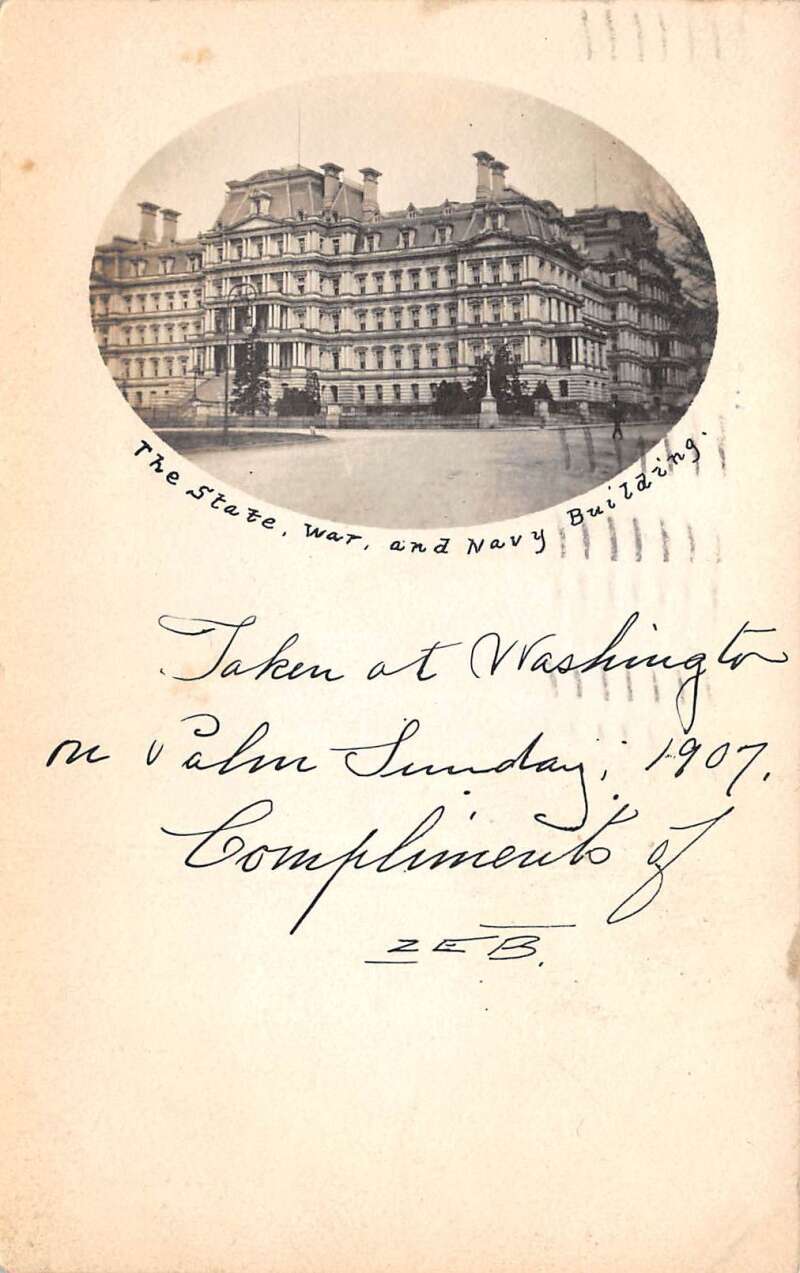 The State, War, and Navy Building.
Taken at Washington
on Palm Sunday, 1907.
Compliments of
ZEB.